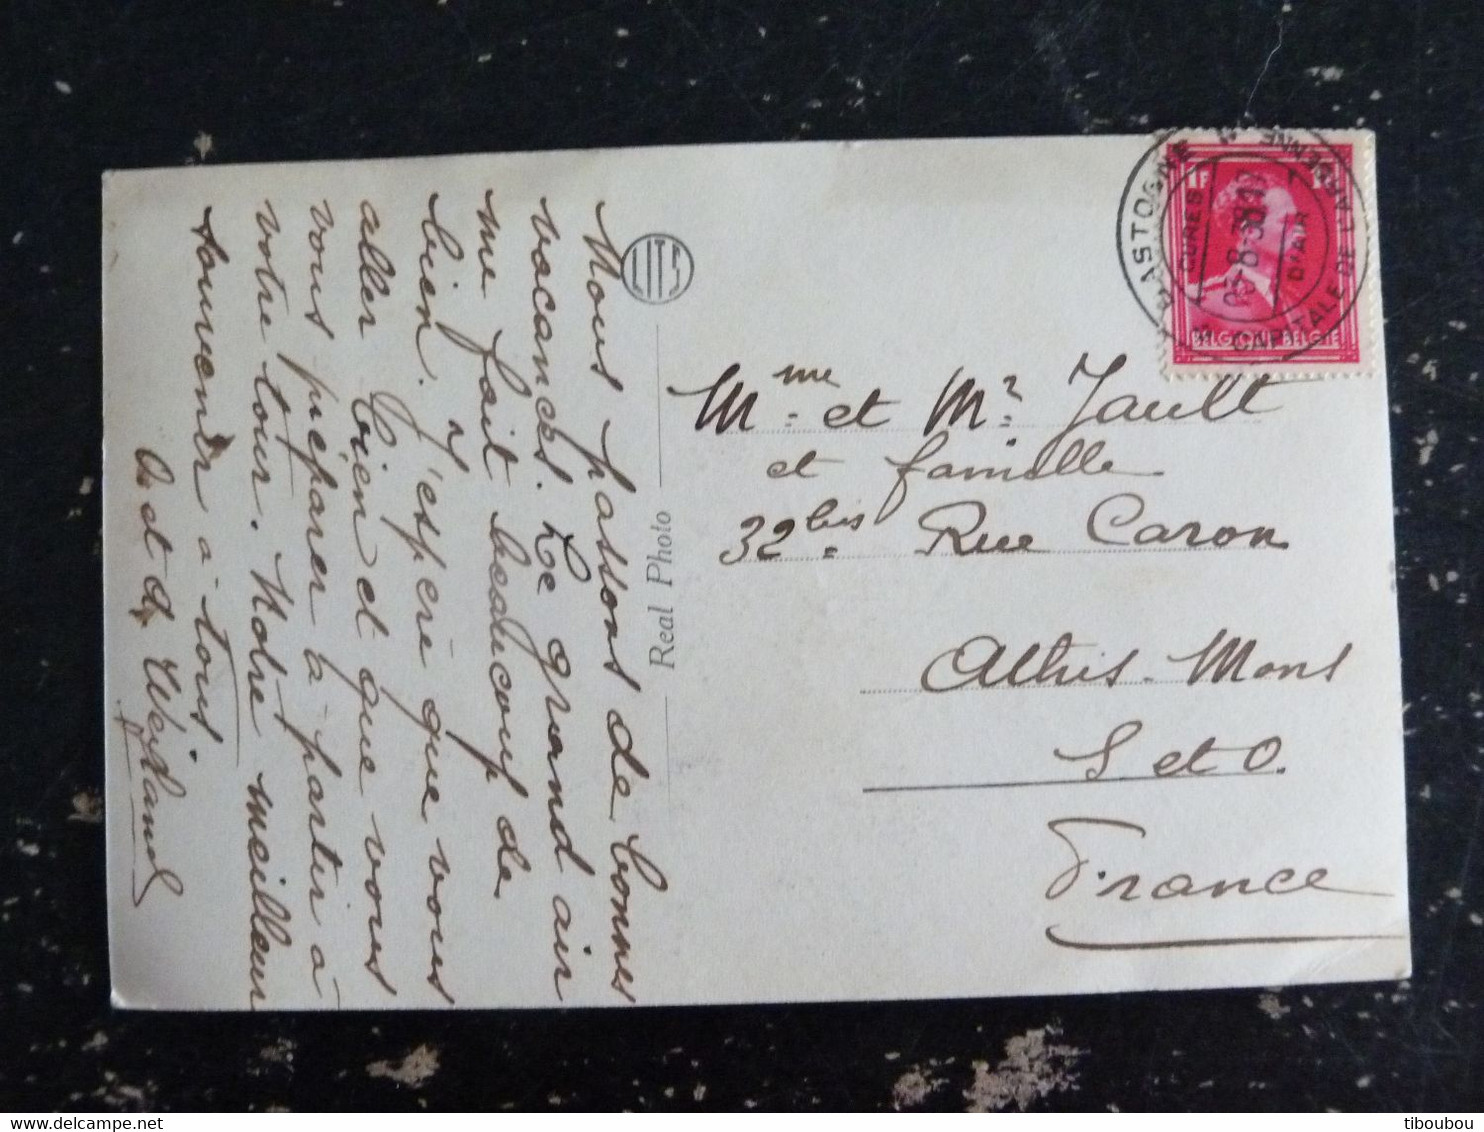 Nous passons de bonnes
vacances. Le grand air
me fait beaucoup de
bien. J'espère que vous
aller bien et que vous
vous préparer à partir à
votre tour. Notre meilleur
souvenir à tous.
et
LITS
Real Photo
Mme et Mr Jault
et famille
32bis Rue Caron
Athis-Mons
S et O.
France
1F
BELGIQUE BELGIE
BASTOGNE
CAPITALE DE L'ARDENNE
CURES D'AIR
www.delcampe.net
tiboubou